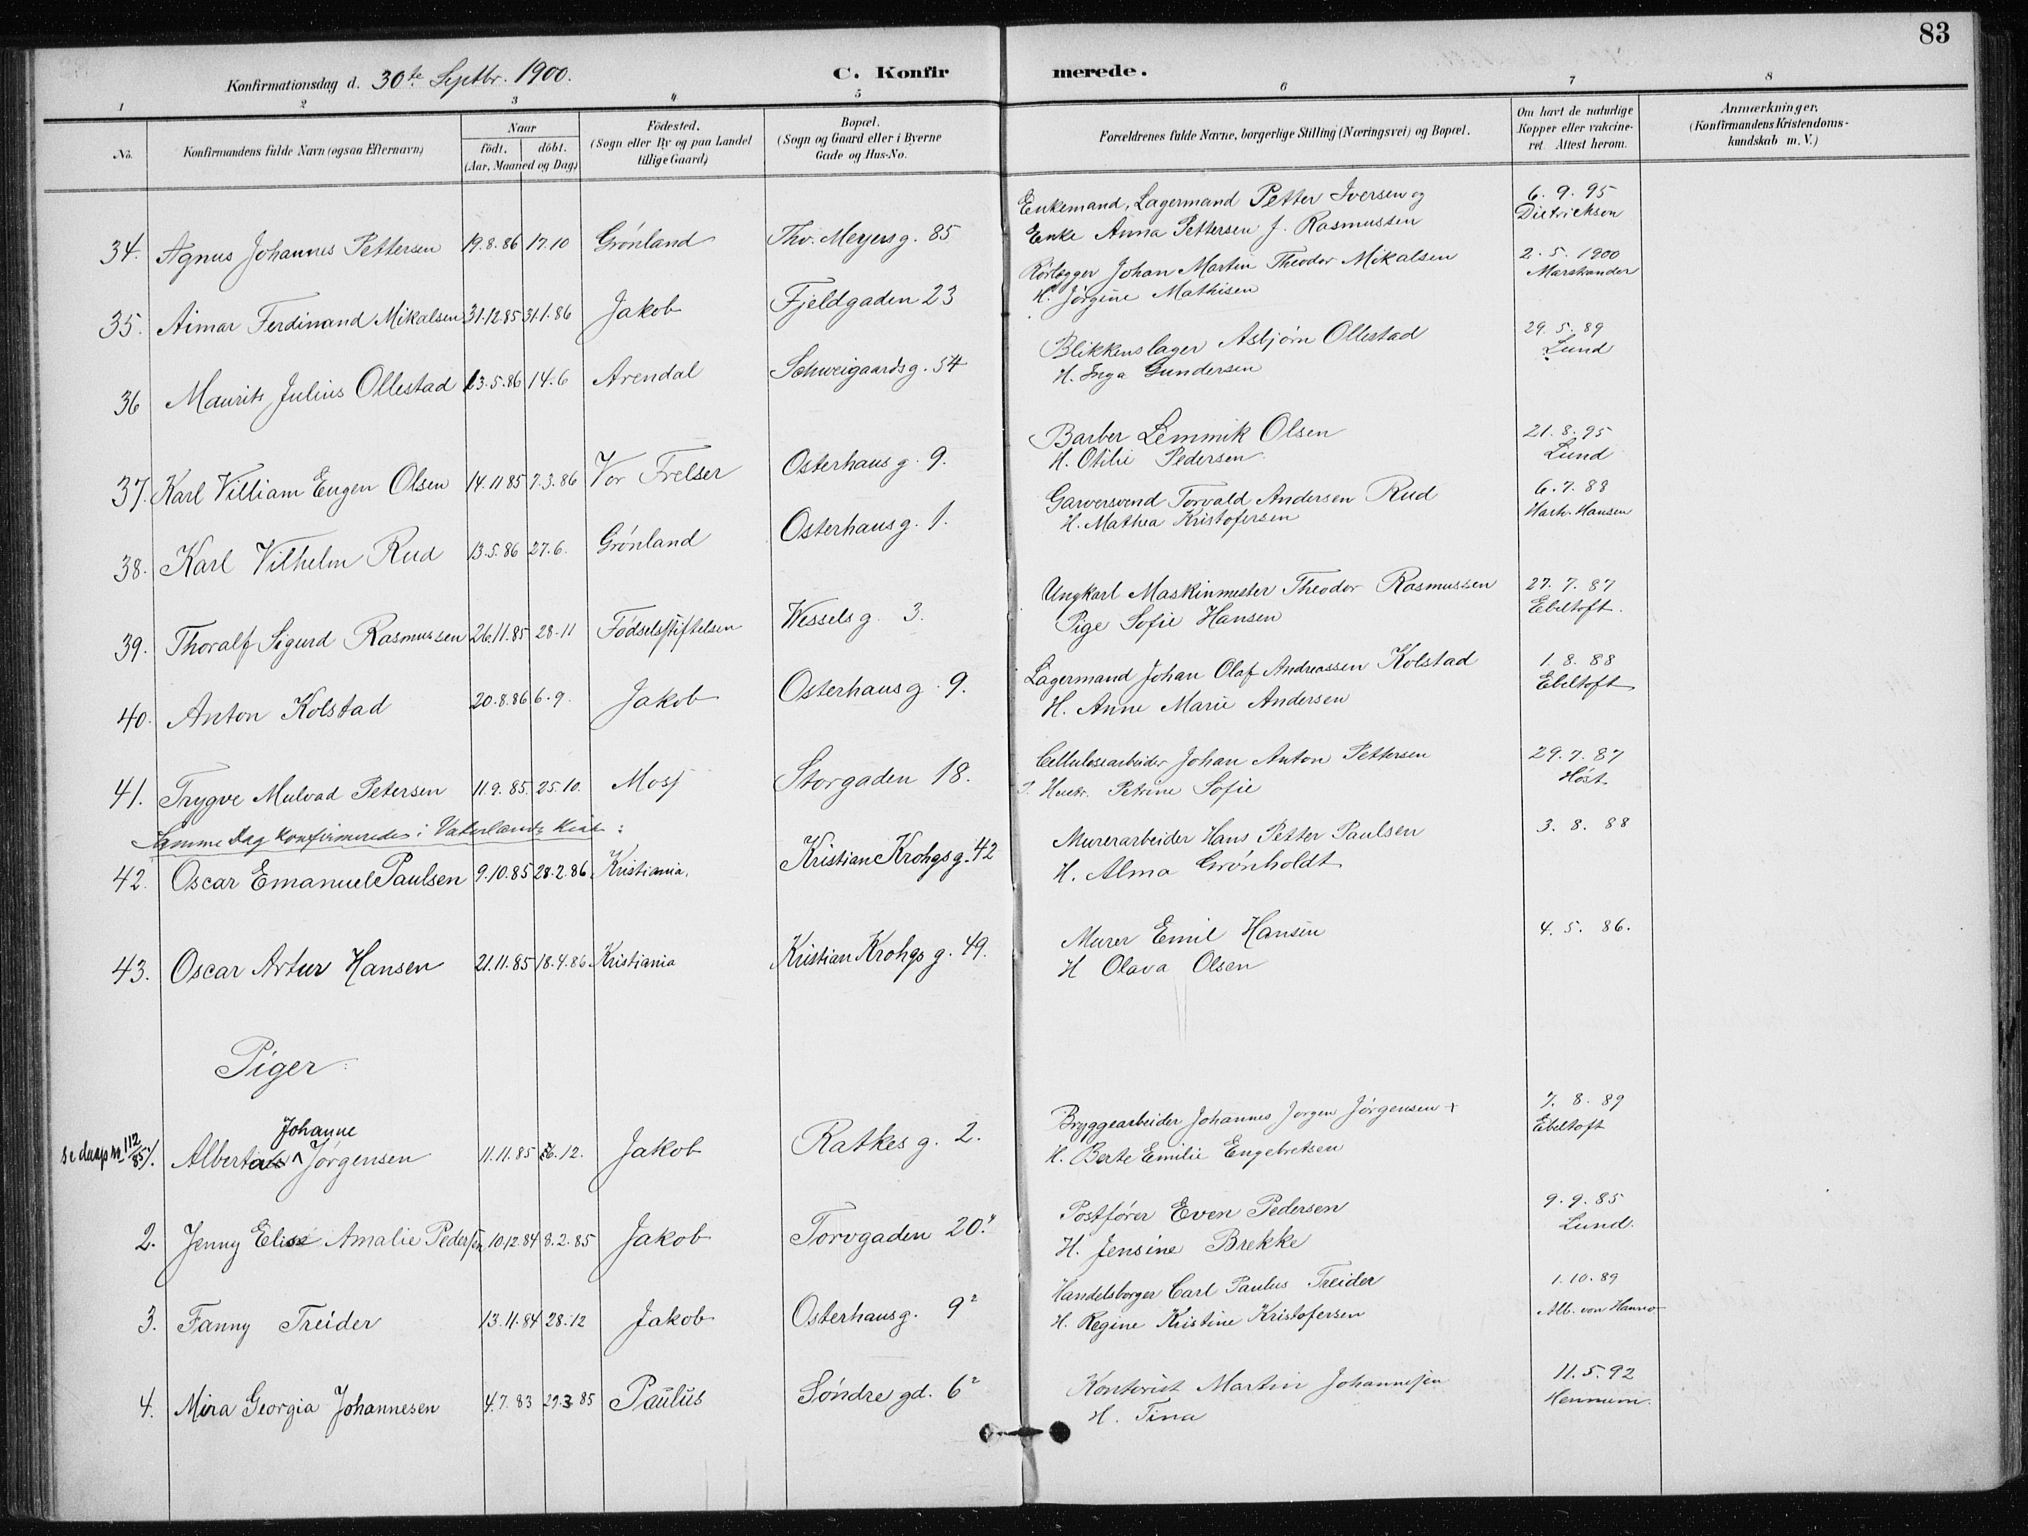 83
Konfirmationsdag d. 30te Septbr. 1900. C. Konfirmerede.
1 2 3 4 5 6 7 8
No. Konfirmandens fulde Navn (ogsaa Efternavn) Naar født. døbt. (Aar, Maaned og Dag) Fødested. (Sogn eller By og paa Landet tillige Gaard) Bopæl. (Sogn og Gaard eller i Byerne Gade og Hus-No. Forældrenes fulde Navne, borgerlige Stilling (Næringsvei) og Bopæl. Om havt de naturlige Kopper eller vakcineret. Attest herom. Anmærkninger. (Konfirmandens Kristendomskundskab m. V.)
34. Agnus Johannes Pettersen 19.8.86 17.10 Grønland Thv. Meyersg. 85 Enkemand, Lagermand Petter Iversen og 6.9.95
Enke Anna Pettersen f. Rasmussen Dietrichson
35. Aimar Ferdinand Mikalsen 31.12.85 31.1.86 Jakob Fjeldgaden 23 Rørlægger Johan Martin Theodor Mikalsen 2.5.1900
H. Jørgine Mathisen Marstrander
36 Maurits Julius Ollestad 13.5.86 14.6 Arendal Schweigaardsg. 54 Blikkenslager Asbjørn Ollestad 29.5.89
H. Inga Gundersen Lund
37. Karl Villiam Eugen Olsen 14.11.85 7.3.86 Vor Frelser Osterhausg. 9. Barber Lemmik Olsen 21.8.95
H. Otilie Pedersen Lund
38. Karl Vilhelm Rud 13.5.86 27.6. Grønland Osterhausg. 1. Garversvend Torvald Andersen Rud 6.7.88
H. Mathea Kristofersen Harb. Hansen
39. Thoralf Sigurd Rasmussen 26.11.85 28.11 Fødselsstiftelsen Wesselsg. 3. Ungkarl Maskinmester Theodor Rasmussen 27.7.87
Pige Sofie Hansen Ebeltoft.
40. Anton Kolstad 20.8.86 6.9. Jakob Osterhausg. 9. Lagermand Johan Olaf Andreassen Kolstad 1.8.88
H. Anne Marie Andersen Ebeltoft
41. Trygve Mulvad Petersen 11.9.85 25.10. Moss Storgaden 18. Cellulosearbeider Johan Anton Pettersen 29.7.87
Hustr. Petrine Sofie Høst.
Samme Dag konfirmeredes i Vaterlands Kirke:
42. Oscar Emanuel Paulsen 9.10.85 28.2.86 Kristiania. Kristian Krohgsg. 42 Murerarbeider Hans Petter Paulsen 3.8.88
H. Alma Grønholdt
43. Oscar Artur Hansen 21.11.85 18.4.86 Kristiania Kristian Krohgsg. 49. Murer Emil Hansen 4.5.86.
H Olava Olsen
Piger
Johanne
se daap nr 112/85 1. Alberta Jørgensen 11.11.85 26.12. Jakob Ratkes g. 2. Bryggearbeider Johannes Jørgen Jørgensen + 7.8.89
H. Berte Emilie Engebretsen Ebeltoft
2. Jenny Elise Amalie Pedersen 10.12.84 8.2.85 Jakob Torvgaden 20.4 Postfører Even Pedersen 9.9.85
H. Jensine Brekke Lund.
3. Fanny Treider 13.11.84 28.12 Jakob Osterhausg. 9 2 Handelsborger Carl Paulus Treider 1.10.89
H. Regine Kristine Kristofersen Alb. von Hanno
4. Mira Georgia Johannesen 4.7.83 29.3.85 Paulus Søndre gd. 6 2 Kontorist Martin Johannesen 11.5.92
H. Tina Hennum.